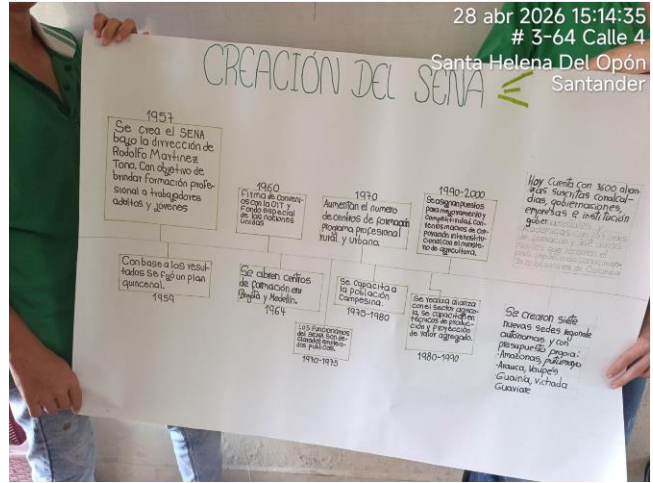 28 abr 2026 15:14:35
# 3-64 Calle 4
Santa Helena Del Opón
Santander
CREACIÓN DEL SENA
1957
Se crea el SENA
bajo la dirrección de
Rodolfo Martinez
Tono. Con objetivo de
brindar formación profe-
sional a trabajadores
adultos y jóvenes
Con base a los resul-
tados se fijo un plan
quincenal.
1959
1960
Firma de Convenios
con la OIT y
Fondo especial
de las naciones
unidas
Se abren centros
de formación en
Bogotá y Medellín.
1964
Los funcionarios
del SENA son de-
clarados emplea-
dos publicos.
1970-1975
1970
Aumentan el numero
de centros de formación
programa profesional
rural y urbana.
Se capacita a
la población
Campesina.
1975-1980
1990-2000
Se asignan puestos
para mejoramiento y
competitividad con-
venios macros de cor-
poración interinstitu-
cional con el ministe-
rio de agricultura.
Se realiza alianza
con el sector agrico-
la, se capacitan en
técnicas de produc-
ción y proyección
de valor agregado.
1980-1990
Hoy Cuenta con 3600 alian-
zas suscritas con alcal-
dias, gobernaciones,
empresas e institución
guber
Se crearon siete
nuevas sedes regionale
autónomas y con
presupuesto propio:
-Amazonas, putumayo
-Arauca, Vaupés
-Guainía, vichada
Guaviare